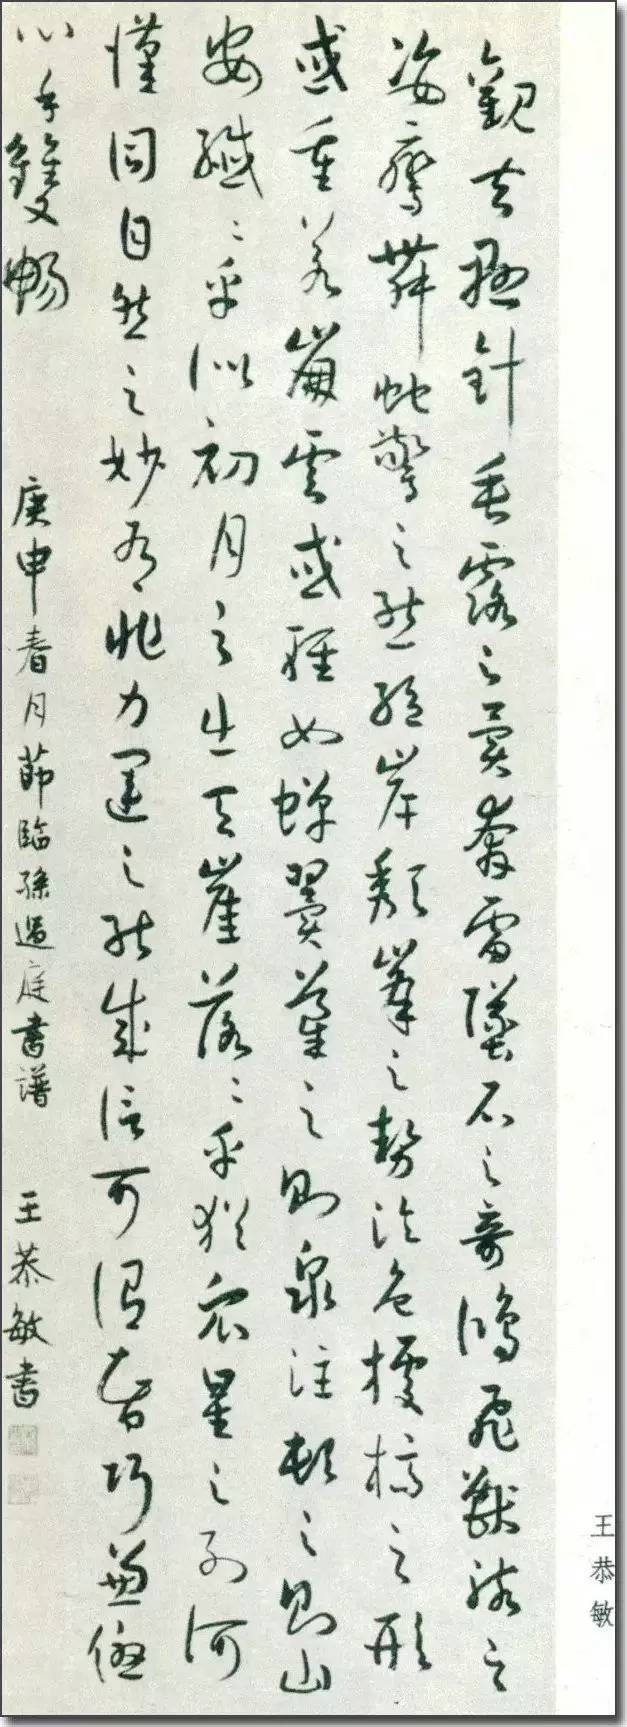 觀夫懸針垂露之異奔雷墜石之奇鴻飛獸駭之
姿鸞舞蛇驚之態絕岸頹峯之勢臨危據槁之形
或重若崩雲或輕如蟬翼導之則泉注頓之則山
安纖〻乎似初月之出天崖落〻乎猶眾星之列河
漢同自然之妙有非力運之能成信可謂智巧兼優
心手雙暢 庚申春月節臨孫過庭書譜 王恭敏書
王恭敏